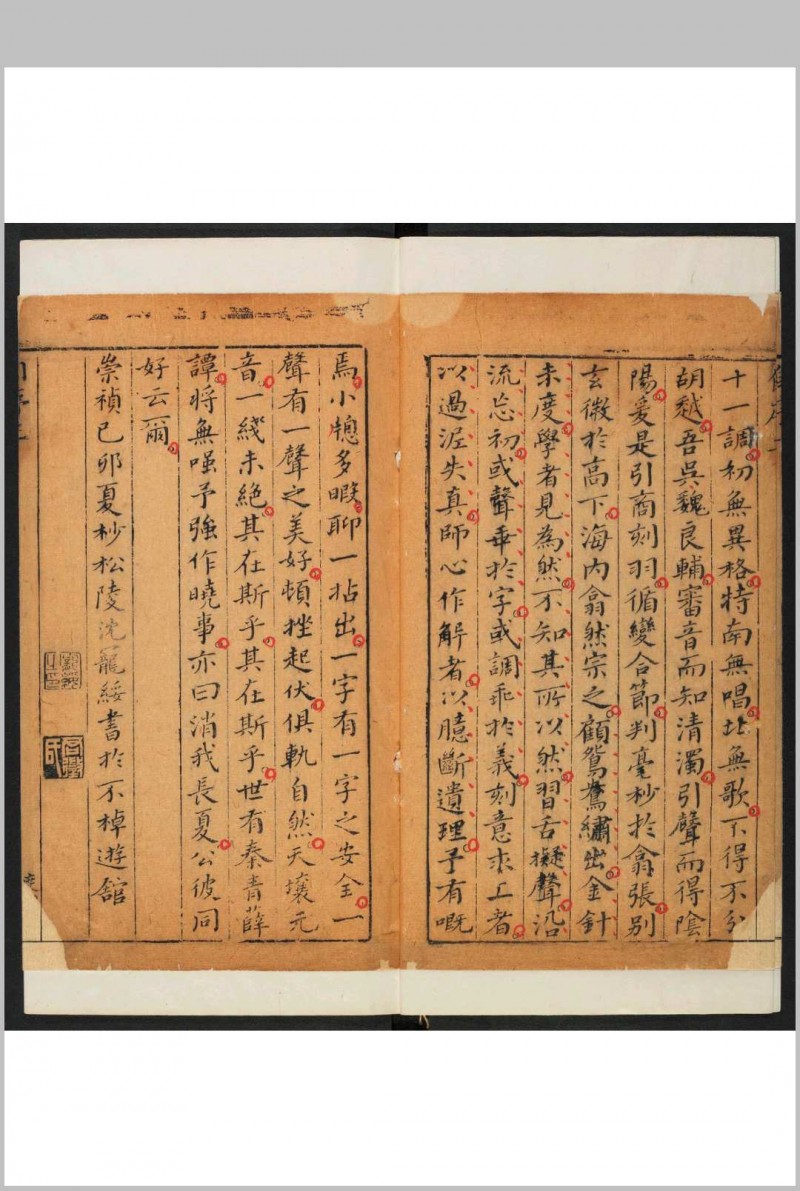 十一調初無異格特南無唱北無歌不得不分
胡越吾吳魏良輔審音而知清濁引聲而得陰
陽爰是引商刻羽循變合節判毫杪於翕張別
玄微於高下海內翕然宗之顧鴛鴦繡出金針
未度學者見為然不知其所以然習舌擬聲沿
流忘初或聲乖於字或調乖於義刻意求工者
以過泥失真師心作解者以臆斷遺理予有嘅
焉小牕多暇聊一拈出一字有一字之安全一
聲有一聲之美好頓挫起伏俱軌自然天壤元
音一綫未絕其在斯乎其在斯乎世有秦青薛
譚將無嗤予強作曉事亦曰消我長夏公彼同
好云爾
崇禎己卯夏杪松陵沈寵綏書於不棹遊舘